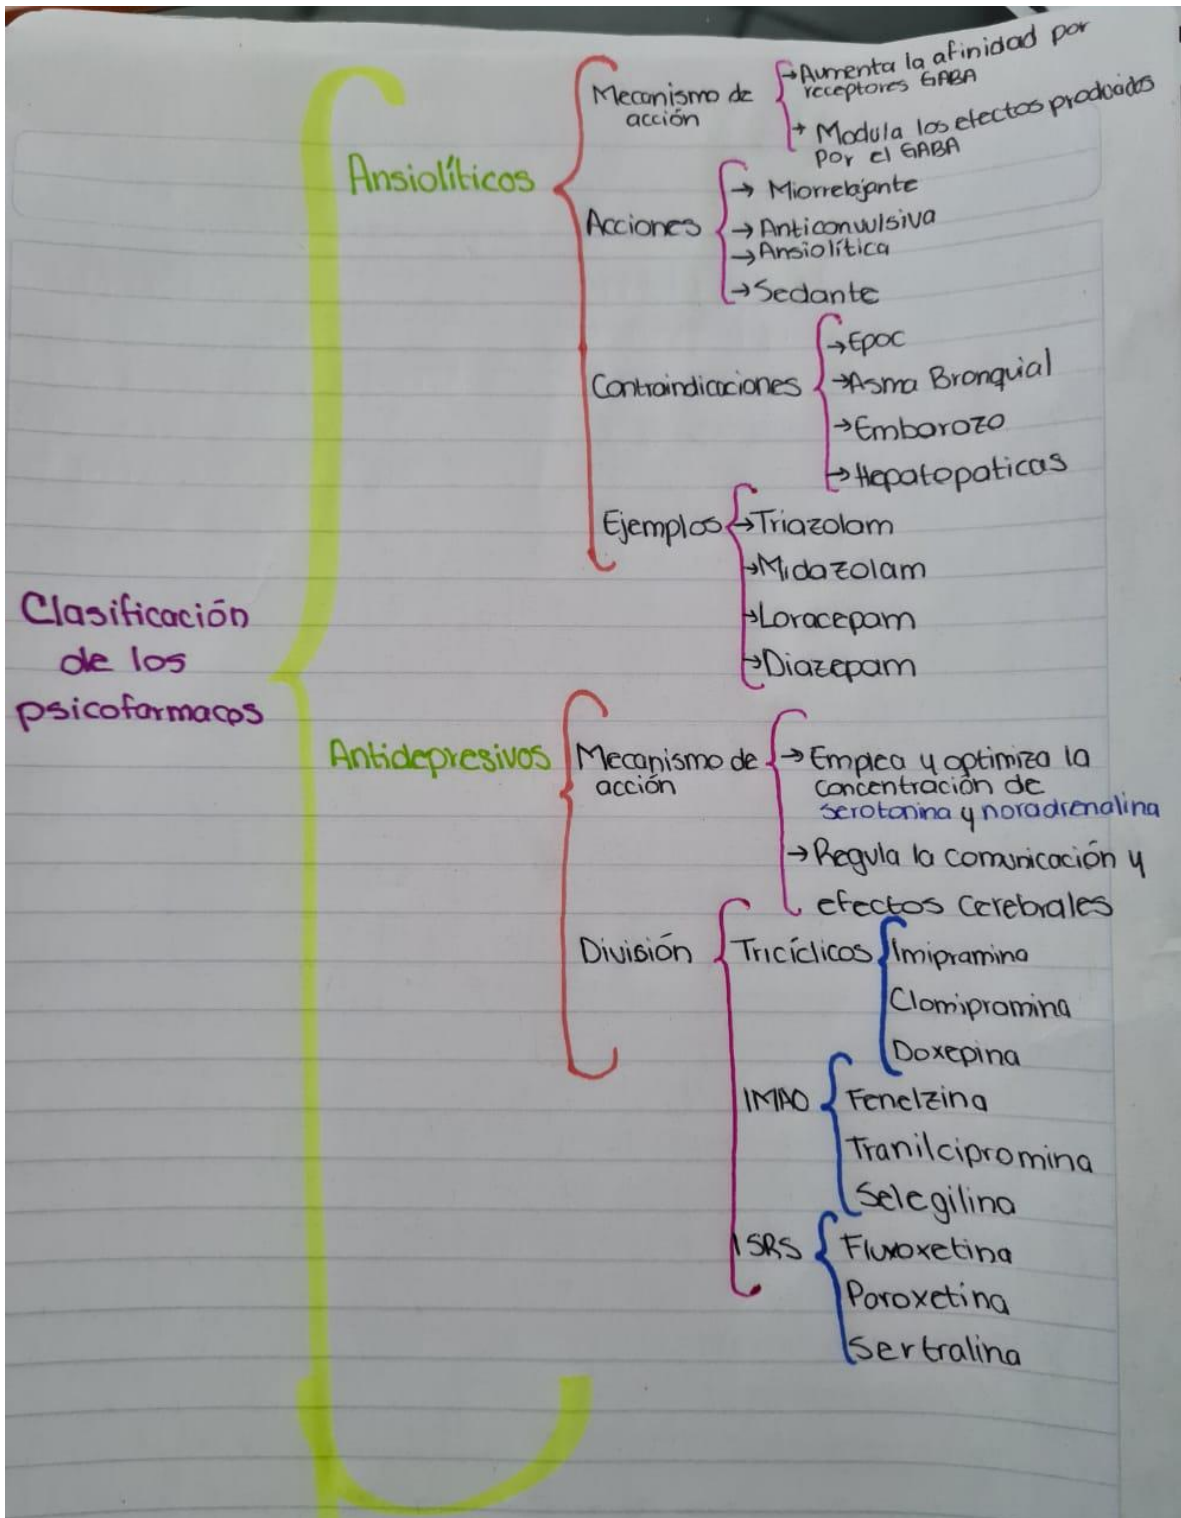 Clasificación
de los
psicofarmacos
Ansiolíticos
Mecanismo de
acción
→Aumenta la afinidad por
receptores GABA
→ Modula los efectos producidos
por el GABA
Acciones
→ Miorrelajante
→Anticonvulsiva
→Ansiolítica
→Sedante
Contraindicaciones
→Epoc
→Asma Bronquial
→Embarazo
→Hepatopaticas
Ejemplos
→Triazolam
→Midazolam
→Loracepam
→Diazepam
Antidepresivos
Mecanismo de
acción
→ Emplea y optimiza la
concentración de
serotonina y noradrenalina
→ Regula la comunicación y
efectos cerebrales
División
Tricíclicos
Imipramina
Clomipramina
Doxepina
IMAO
Fenelzina
Tranilcipromina
Selegilina
ISRS
Fluxoxetina
Paroxetina
Sertralina